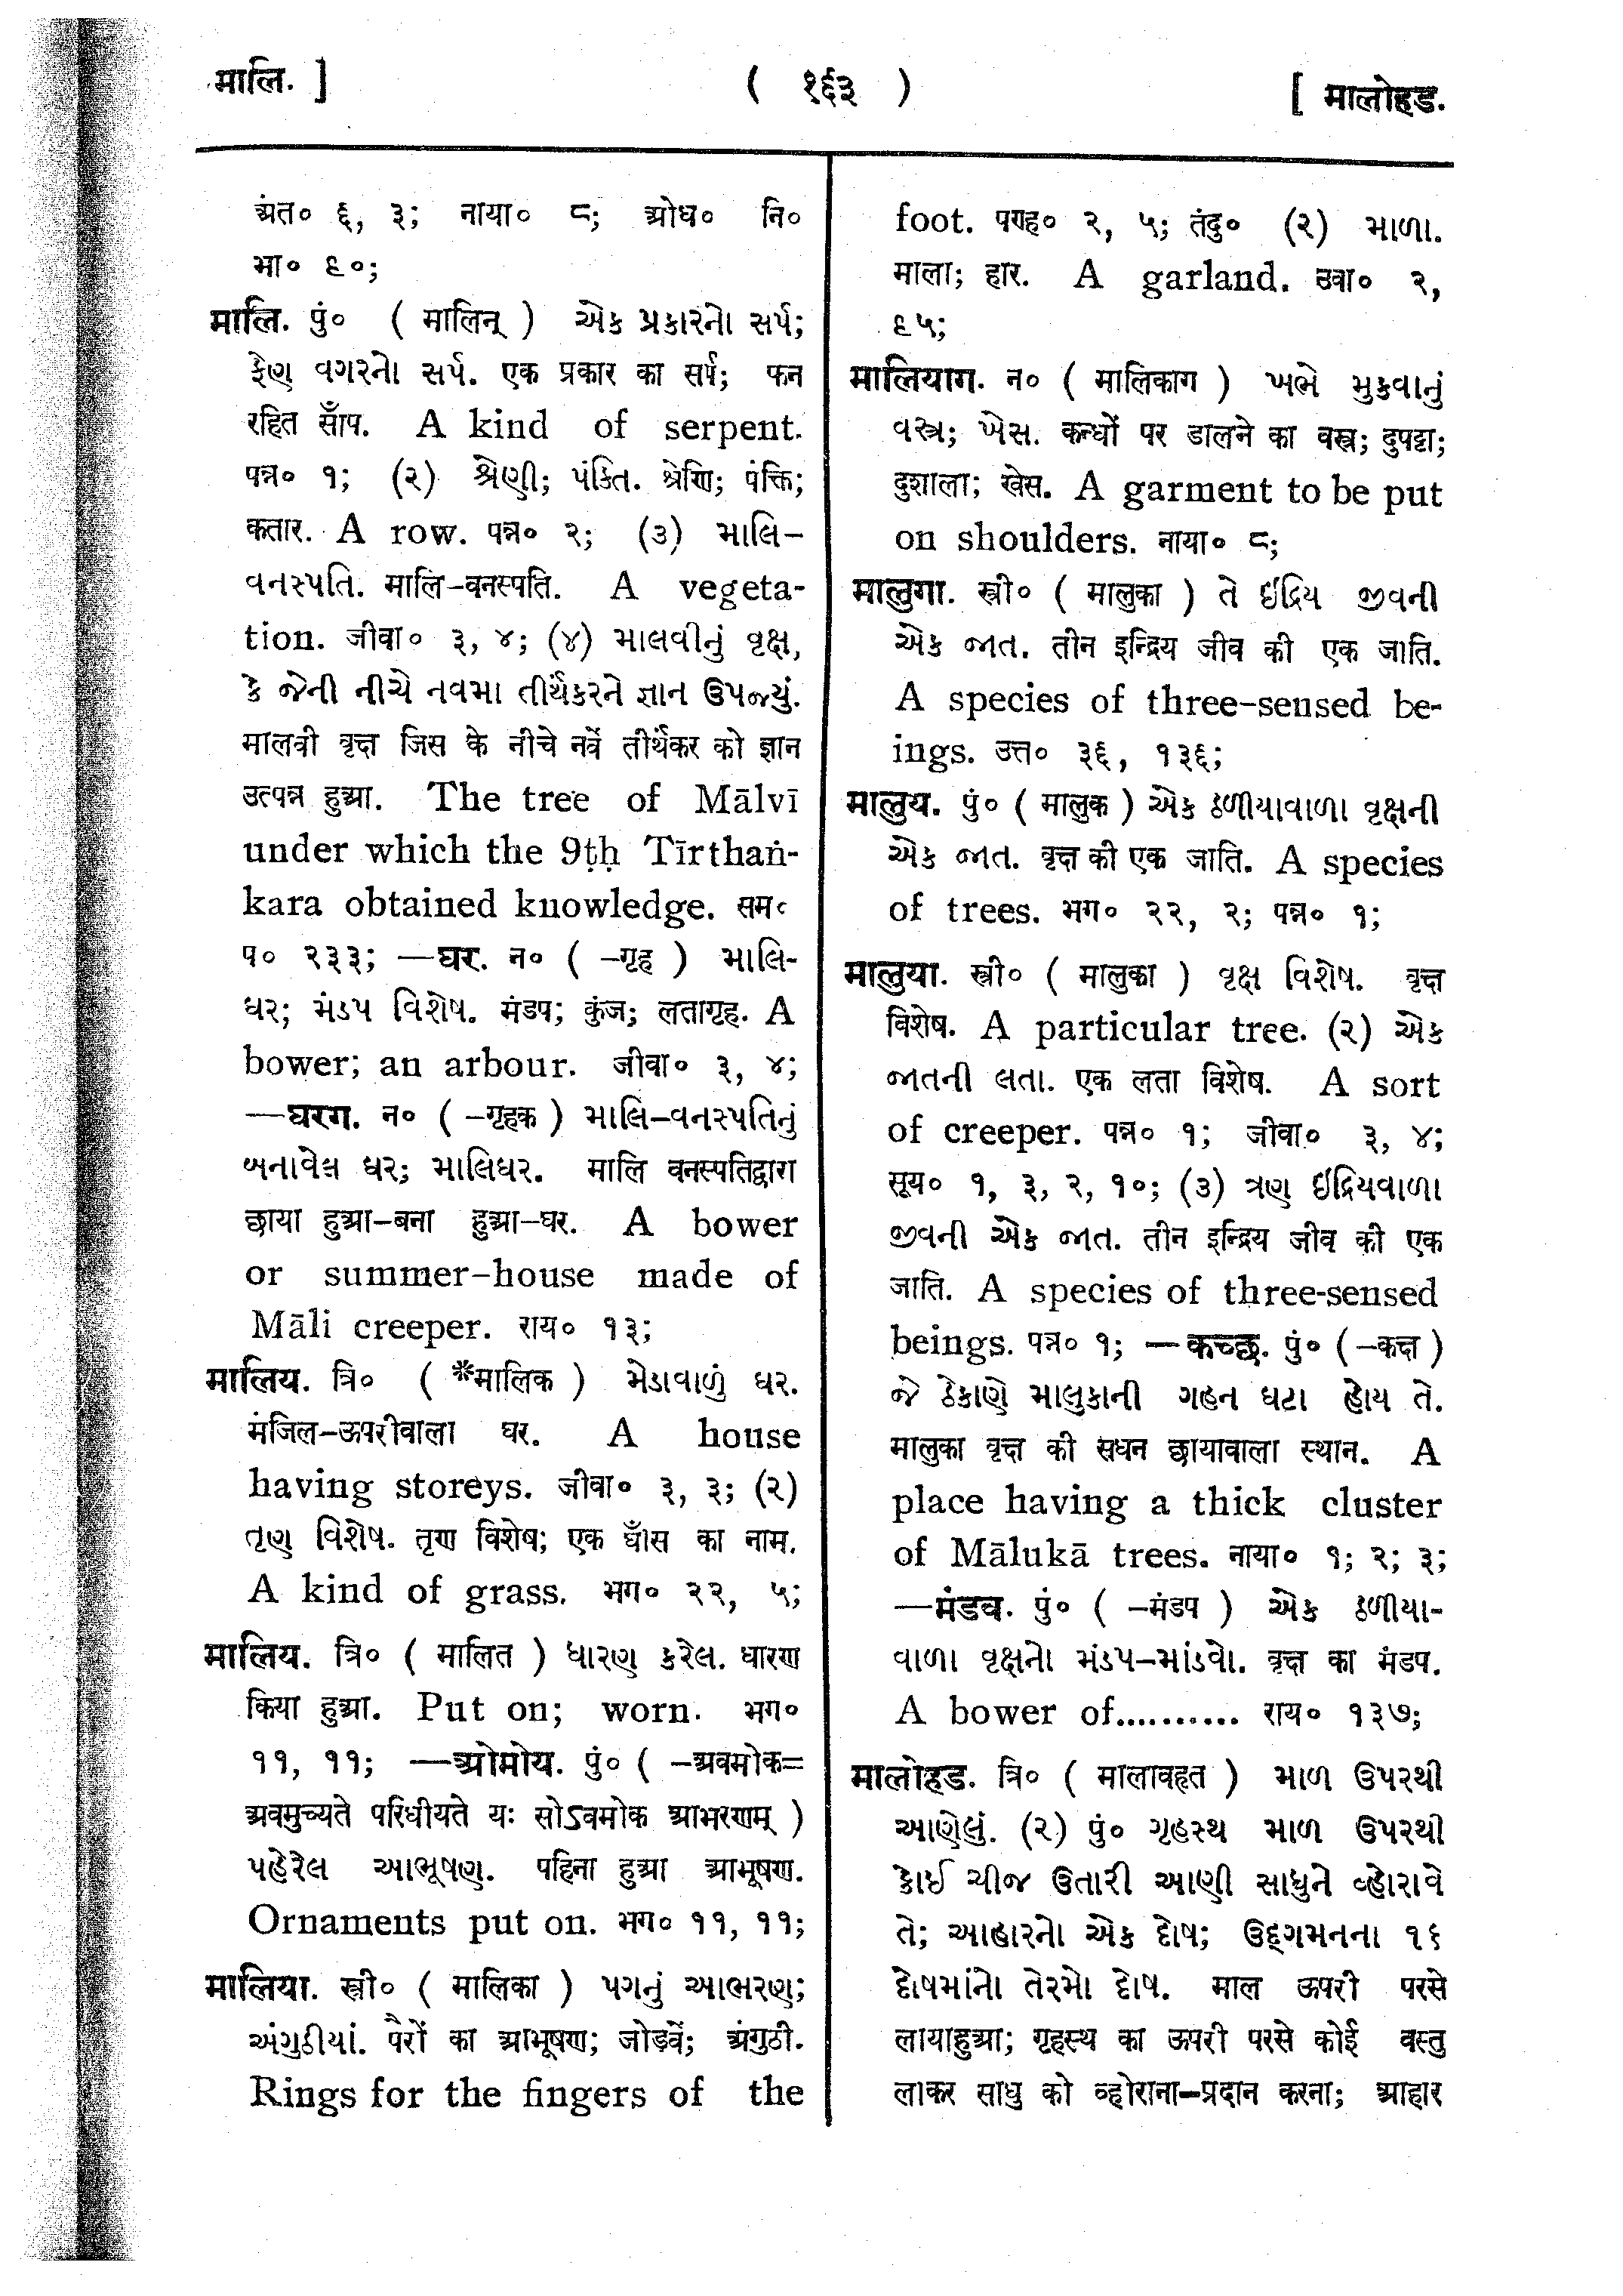 मालि. ]
( १६३ )
[ मालोहड.
अंत० ६, ३; नाया० ८; ओघ० नि०
भा० ९०;
मालि. पुं० ( मालिन् ) એક પ્રકારનો સર્પ;
ફેણ વગરનો સર્પ. एक प्रकार का सर्प; फन
रहित साँप. A kind of serpent.
पन्न० १; (२) શ્રેણી; પંક્તિ. श्रेणि; पंक्ति;
कतार. A row. पन्न० २; (३) માલિ-
વનસ્પતિ. मालि-वनस्पति. A vegeta-
tion. जीवा० ३, ४; (४) માલવીનું વૃક્ષ,
કે જેની નીચે નવમા તીર્થંકરને જ્ઞાન ઉપજ્યું.
मालवी वृक्ष जिस के नीचे नवें तीर्थंकर को ज्ञान
उत्पन्न हुआ. The tree of Mālvī
under which the 9ṭḥ Tīrthaṅ-
kara obtained knowledge. सम०
प० २३३; —घर. न० ( -गृह ) માલિ-
ઘર; મંડપ વિશેષ. मंडप; कुंज; लतागृह. A
bower; an arbour. जीवा० ३, ४;
—घरग. न० ( -गृहक ) માલિ-વનસ્પતિનું
બનાવેલ ઘર; માલિઘર. मालि वनस्पतिद्वारा
छाया हुआ-बना हुआ-घर. A bower
or summer-house made of
Māli creeper. राय० १३;
मालिय. त्रि० ( *मालिक ) મેડાવાળું ઘર.
मंजिल-ऊपरीवाला घर. A house
having storeys. जीवा० ३, ३; (२)
તૃણ વિશેષ. तृण विशेष; एक घाँस का नाम.
A kind of grass. भग० २२, ५;
मालिय. त्रि० ( मालित ) ધારણ કરેલ. धारण
किया हुआ. Put on; worn. भग०
११, ११; —ओमोय. पुं० ( -अवमोक=
अवमुच्यते परिधीयते यः सोऽवमोक आभरणम् )
પહેરેલ આભૂષણ. पहिना हुआ आभूषण.
Ornaments put on. भग० ११, ११;
मालिया. स्त्री० ( मालिका ) પગનું આભરણ;
અંગુઠીયાં. पैरों का आभूषण; जोड़वें; अंगुठी.
Rings for the fingers of the
foot. पण्ह० २, ५; तंदु० (२) માળા.
माला; हार. A garland. उवा० २,
९५;
मालियाग. न० ( मालिकाग ) ખભે મુકવાનું
વસ્ત્ર; ખેસ. कन्धों पर डालने का वस्त्र; दुपट्टा;
दुशाला; खेस. A garment to be put
on shoulders. नाया० ८;
मालुगा. स्त्री० ( मालुका ) તે ઇંદ્રિય જીવની
એક જાત. तीन इन्द्रिय जीव की एक जाति.
A species of three-sensed be-
ings. उत्त० ३६, १३६;
मालुय. पुं० ( मालुक ) એક ઠળીયાવાળા વૃક્ષની
એક જાત. वृक्ष की एक जाति. A species
of trees. भग० २२, २; पन्न० १;
मालुया. स्त्री० ( मालुका ) વૃક્ષ વિશેષ. वृक्ष
विशेष. A particular tree. (२) એક
જાતની લતા. एक लता विशेष. A sort
of creeper. पन्न० १; जीवा० ३, ४;
सूय० १, ३, २, १०; (३) ત્રણ ઇંદ્રિયવાળા
જીવની એક જાત. तीन इन्द्रिय जीव की एक
जाति. A species of three-sensed
beings. पन्न० १; —कच्छ. पुं० ( -कक्ष )
જે ઠેકાણે માલુકાની ગહન ઘટા હોય તે.
मालुका वृक्ष की सघन छायावाला स्थान. A
place having a thick cluster
of Mālukā trees. नाया० १; २; ३;
—मंडव. पुं० ( -मंडप ) એક ઠળીયા-
વાળા વૃક્ષનો મંડપ-માંડવો. वृक्ष का मंडप.
A bower of.......... राय० १३७;
मालोहड. त्रि० ( मालावहृत ) માળ ઉપરથી
આણેલું. (२) पुं० ગૃહસ્થ માળ ઉપરથી
કોઈ ચીજ ઉતારી આણી સાધુને વ્હોરાવે
તે; આહારનો એક દોષ; ઉદ્‌ગમનના ૧૬
દોષમાંનો તેરમો દોષ. माल ऊपरी परसे
लायाहुआ; गृहस्थ का ऊपरी परसे कोई वस्तु
लाकर साधु को व्होराना-प्रदान करना; आहार